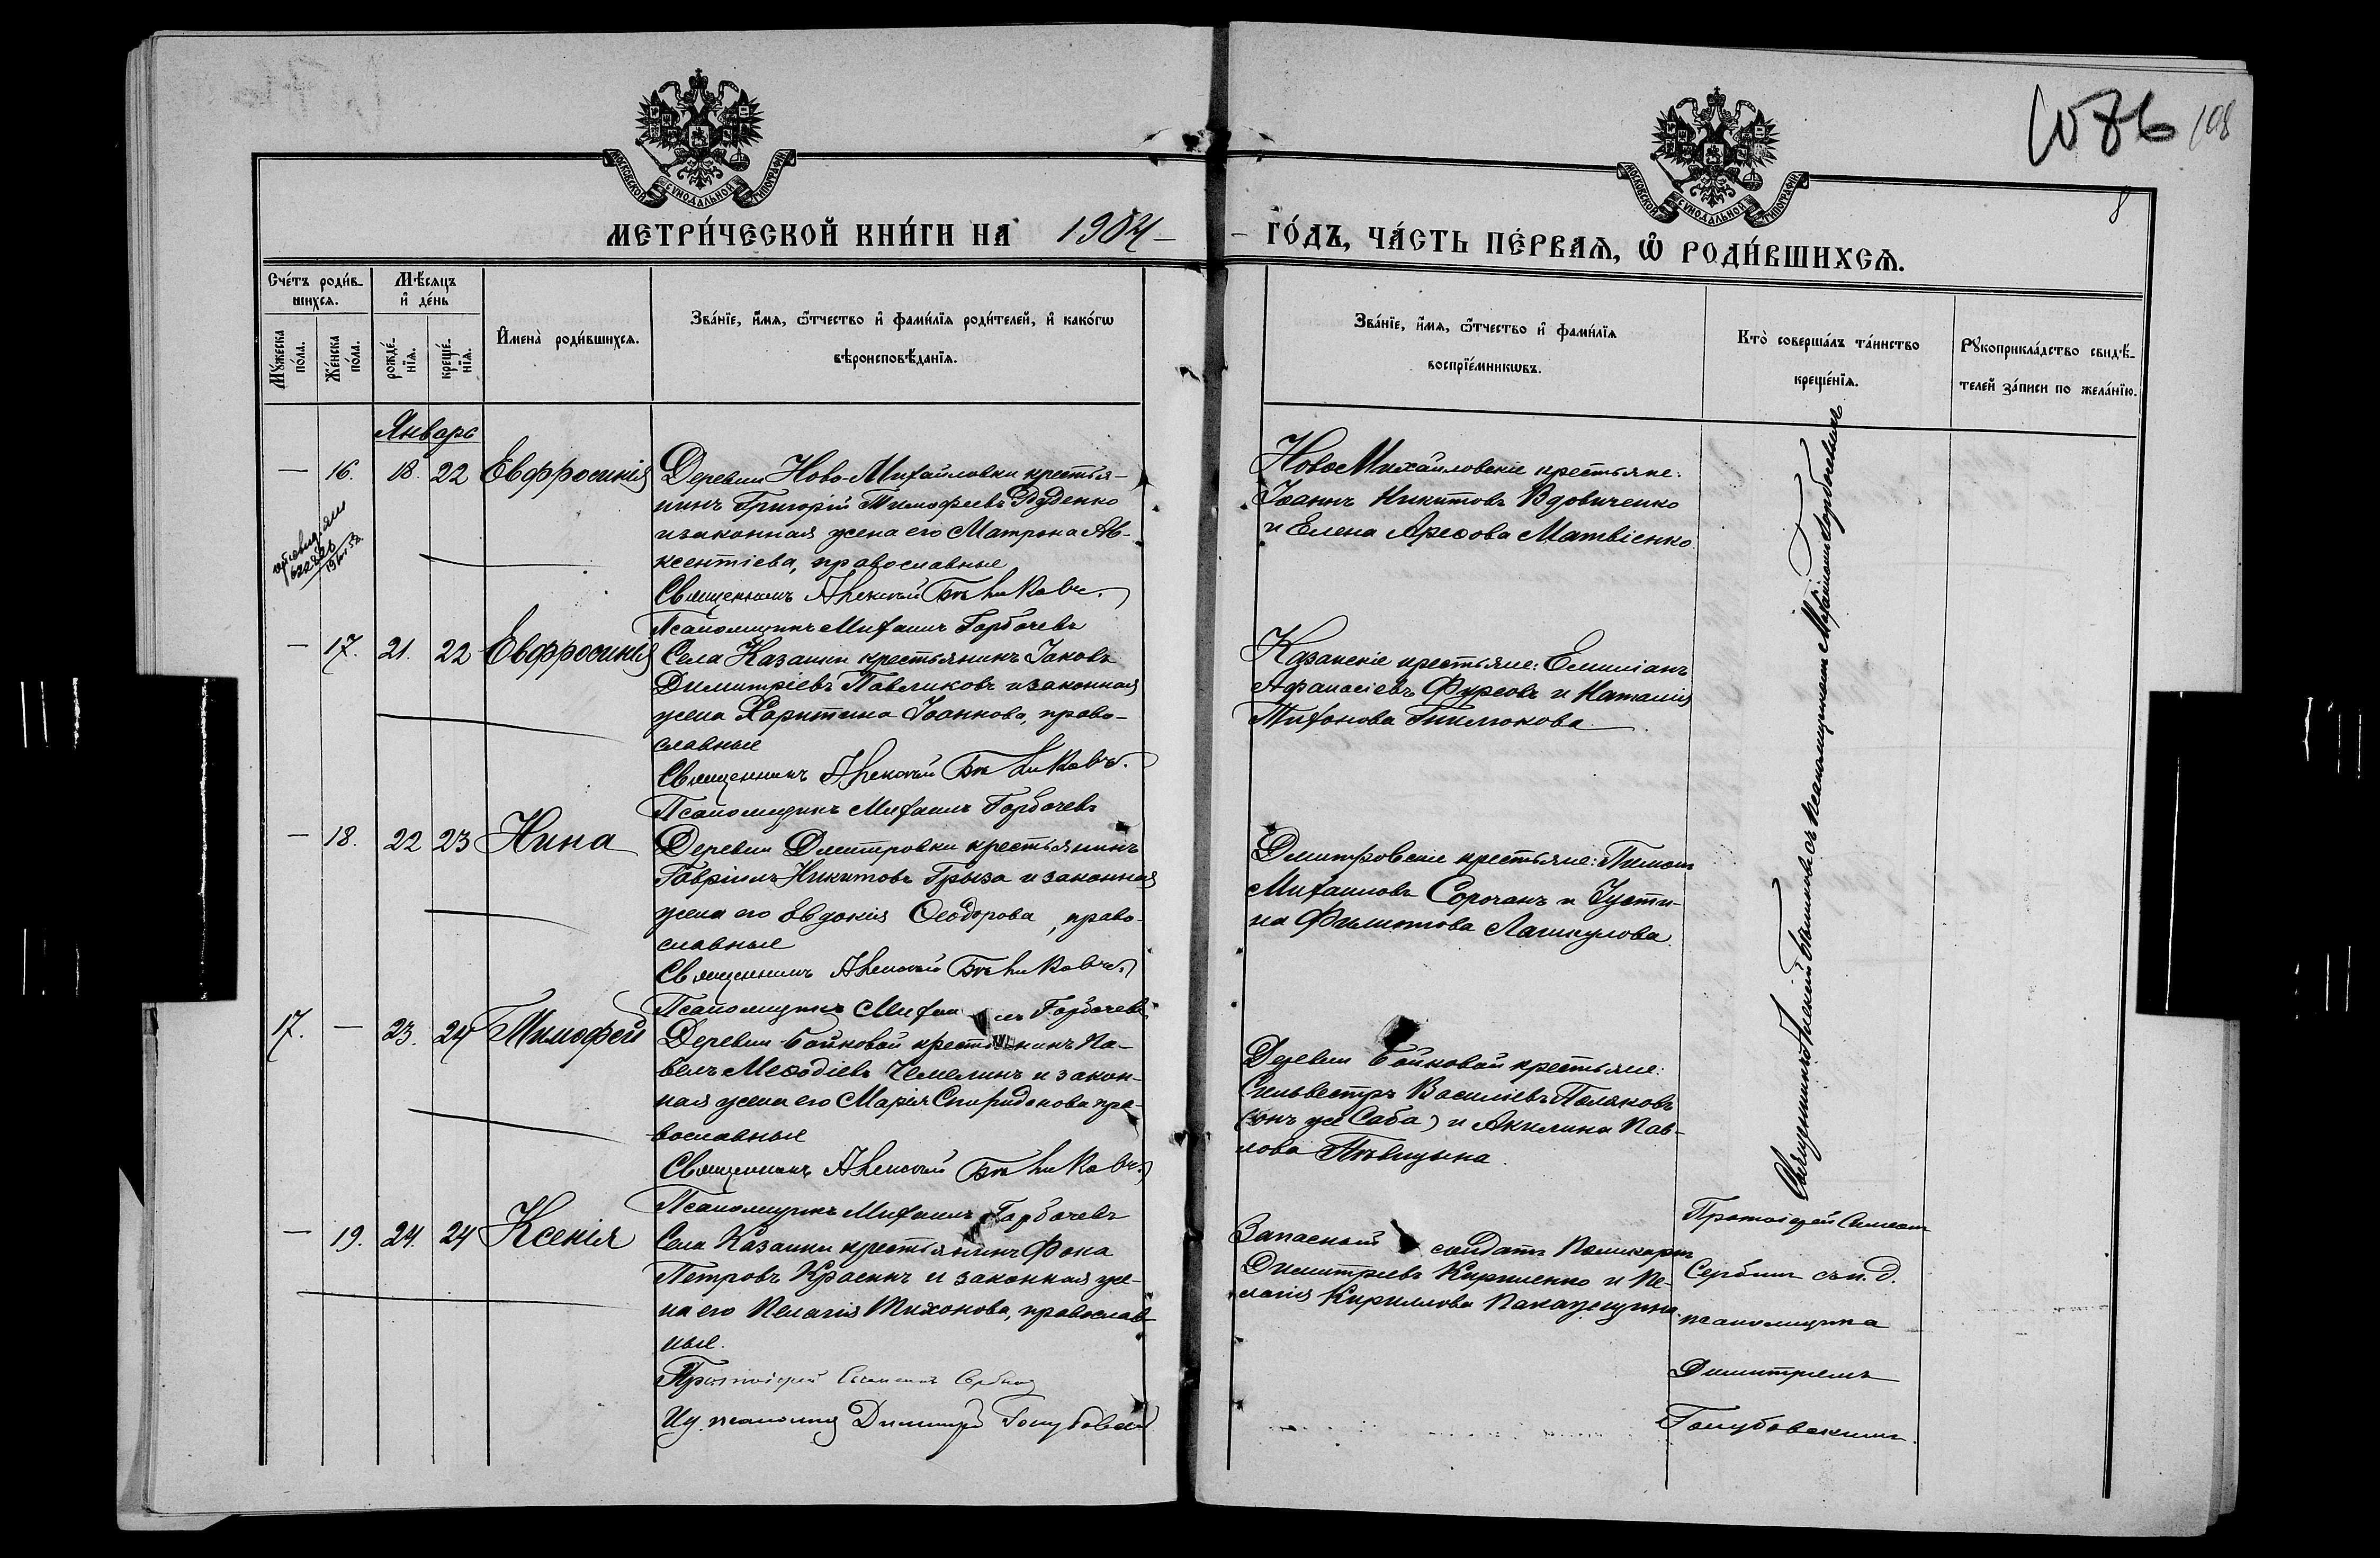 1086 108
8
МОСКОВСКОЙ СѴНОДАЛЬНОЙ ТИПОГРАФІИ
МОСКОВСКОЙ СѴНОДАЛЬНОЙ ТИПОГРАФІИ
МЕТРИ́ЧЕСКОЙ КНИ́ГИ НА 1904 – – ГО́ДЪ, ЧА́СТЬ ПЕ́РВАѦ, Ѽ РОДИ́ВШИХСѦ.
Сче́тъ роди́в-
шихсѧ.
Мꙋ́жеска по́ла.
Же́нска по́ла.
Мѣ́сѧцъ и҆ де́нь
рожде́-нїѧ.
креще́-нїѧ.
И҆мена̀ роди́вшихсѧ.
Зва́нїе, и҆́мѧ, ѻ҆́тчество и҆ фами́лїѧ роди́телей, и҆ како́гѡ
вѣроисповѣ́данїѧ.
Зва́нїе, и҆́мѧ, ѻ҆́тчество и҆ фами́лїѧ
воспрїе́мникѡвъ.
Кто̀ соверша́лъ та́инство
креще́нїѧ.
Рꙋкоприкла́дство свидѣ́-
телей за́писи по жела́нїю.
Январь
— 16. 18. 22 Евфросинія
Деревни Ново-Михайловки крестья-
нинъ Григорій Тимофеевъ Руденко
и законная жена его Матрона Ав-
ксентіева, православные
Священникъ Алексѣй Бѣликовъ.
Псаломщикъ Михаилъ Горбачевъ
НовоМихайловскіе крестьяне:
Іоаннъ Никитовъ Вдовиченко
и Елена Арефова Матвіенко
— 17. 21. 22 Евфросинія
Села Казанки крестьянинъ Іаковъ
Димитріевъ Павликовъ и законная
жена Харитина Іоаннова, право-
славные
Священникъ Алексѣй Бѣликовъ.
Псаломщикъ Михаилъ Горбачевъ
Казанскіе крестьяне: Емиліанъ
Афанасіевъ Фурсовъ и Наталія
Тихонова
— 18. 22 23 Нина
Деревни Дмитровки крестьянинъ
Гавріилъ Никитовъ Грыза и законная
жена его Евдокія Ѳеодорова, право-
славные
Священникъ Алексѣй Бѣликовъ.
Псаломщикъ Михаилъ Горбачевъ
Дмитровскіе крестьяне: Пименъ
Михаиловъ Сорочанъ и Іусти-
на Филиппова Лашкулова.
17. — 23. 24 Тимофей
Деревни Бойковой крестьянинъ Па-
велъ Меѳодіевъ Чемелинъ и закон-
ная жена его Марія Спиридонова пра-
вославные
Священникъ Алексѣй Бѣликовъ.
Псаломщикъ Михаилъ Горбачевъ
Деревни Бойковой крестьяне:
Сильвестръ Василіевъ Поляковъ
(онъ же Саба) и Акилина Пав-
лова Пѣвицына.
Священникъ Алексѣй Бѣликовъ съ псаломщикомъ Михаиломъ Горбачевымъ
— 19. 24. 24 Ксенія
Села Казанки крестьянинъ Фока
Петровъ Красинъ и законная же-
на его Пелагія Тихонова, православ-
ные.
Протоіерей Симеонъ Сербинъ
И.д. псаломщ. Димитрій Голубовскій
Запасный солдатъ Поликарпъ
Димитріевъ Кириленко и Пе-
лагія Кириллова
Протоіерей Симеонъ
Сербинъ съ и. д.
псаломщика
Димитріемъ
Голубовскимъ.